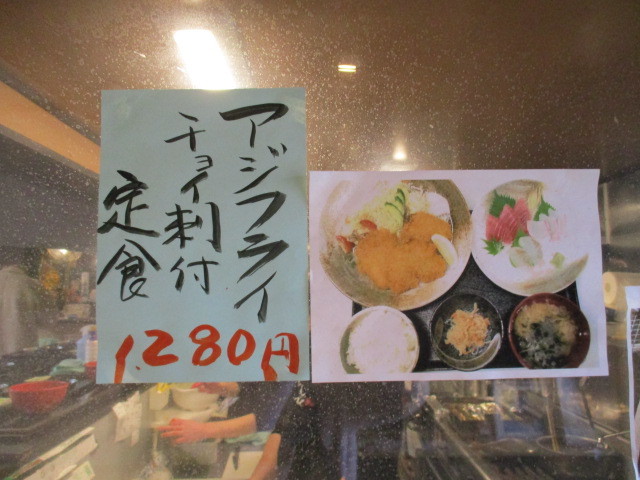 アジフライ
チョイ刺付
定食
1.280円